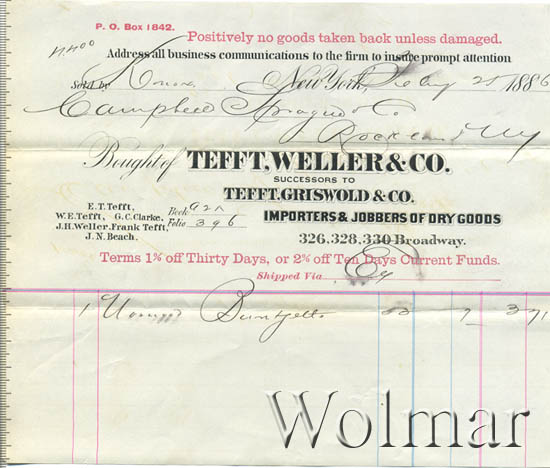 P. O. Box 1842.
Positively no goods taken back unless damaged.
Address all business communications to the firm to insure prompt attention
Sold by Knox New York, 25 1886
Campbell Sprague & Co
Bought of TEFFT, WELLER & CO.
SUCCESSORS TO
TEFFT, GRISWOLD & CO.
E.T. Tefft,
W.E. Tefft, G.C. Clarke,
J.H. Weller. Frank Tefft,
J.N. Beach.
Book
Folio 396
IMPORTERS & JOBBERS OF DRY GOODS
326.328.330 Broadway.
Terms 1% off Thirty Days, or 2% off Ten Days Current Funds.
Shipped Via Ex
1
Wolmar